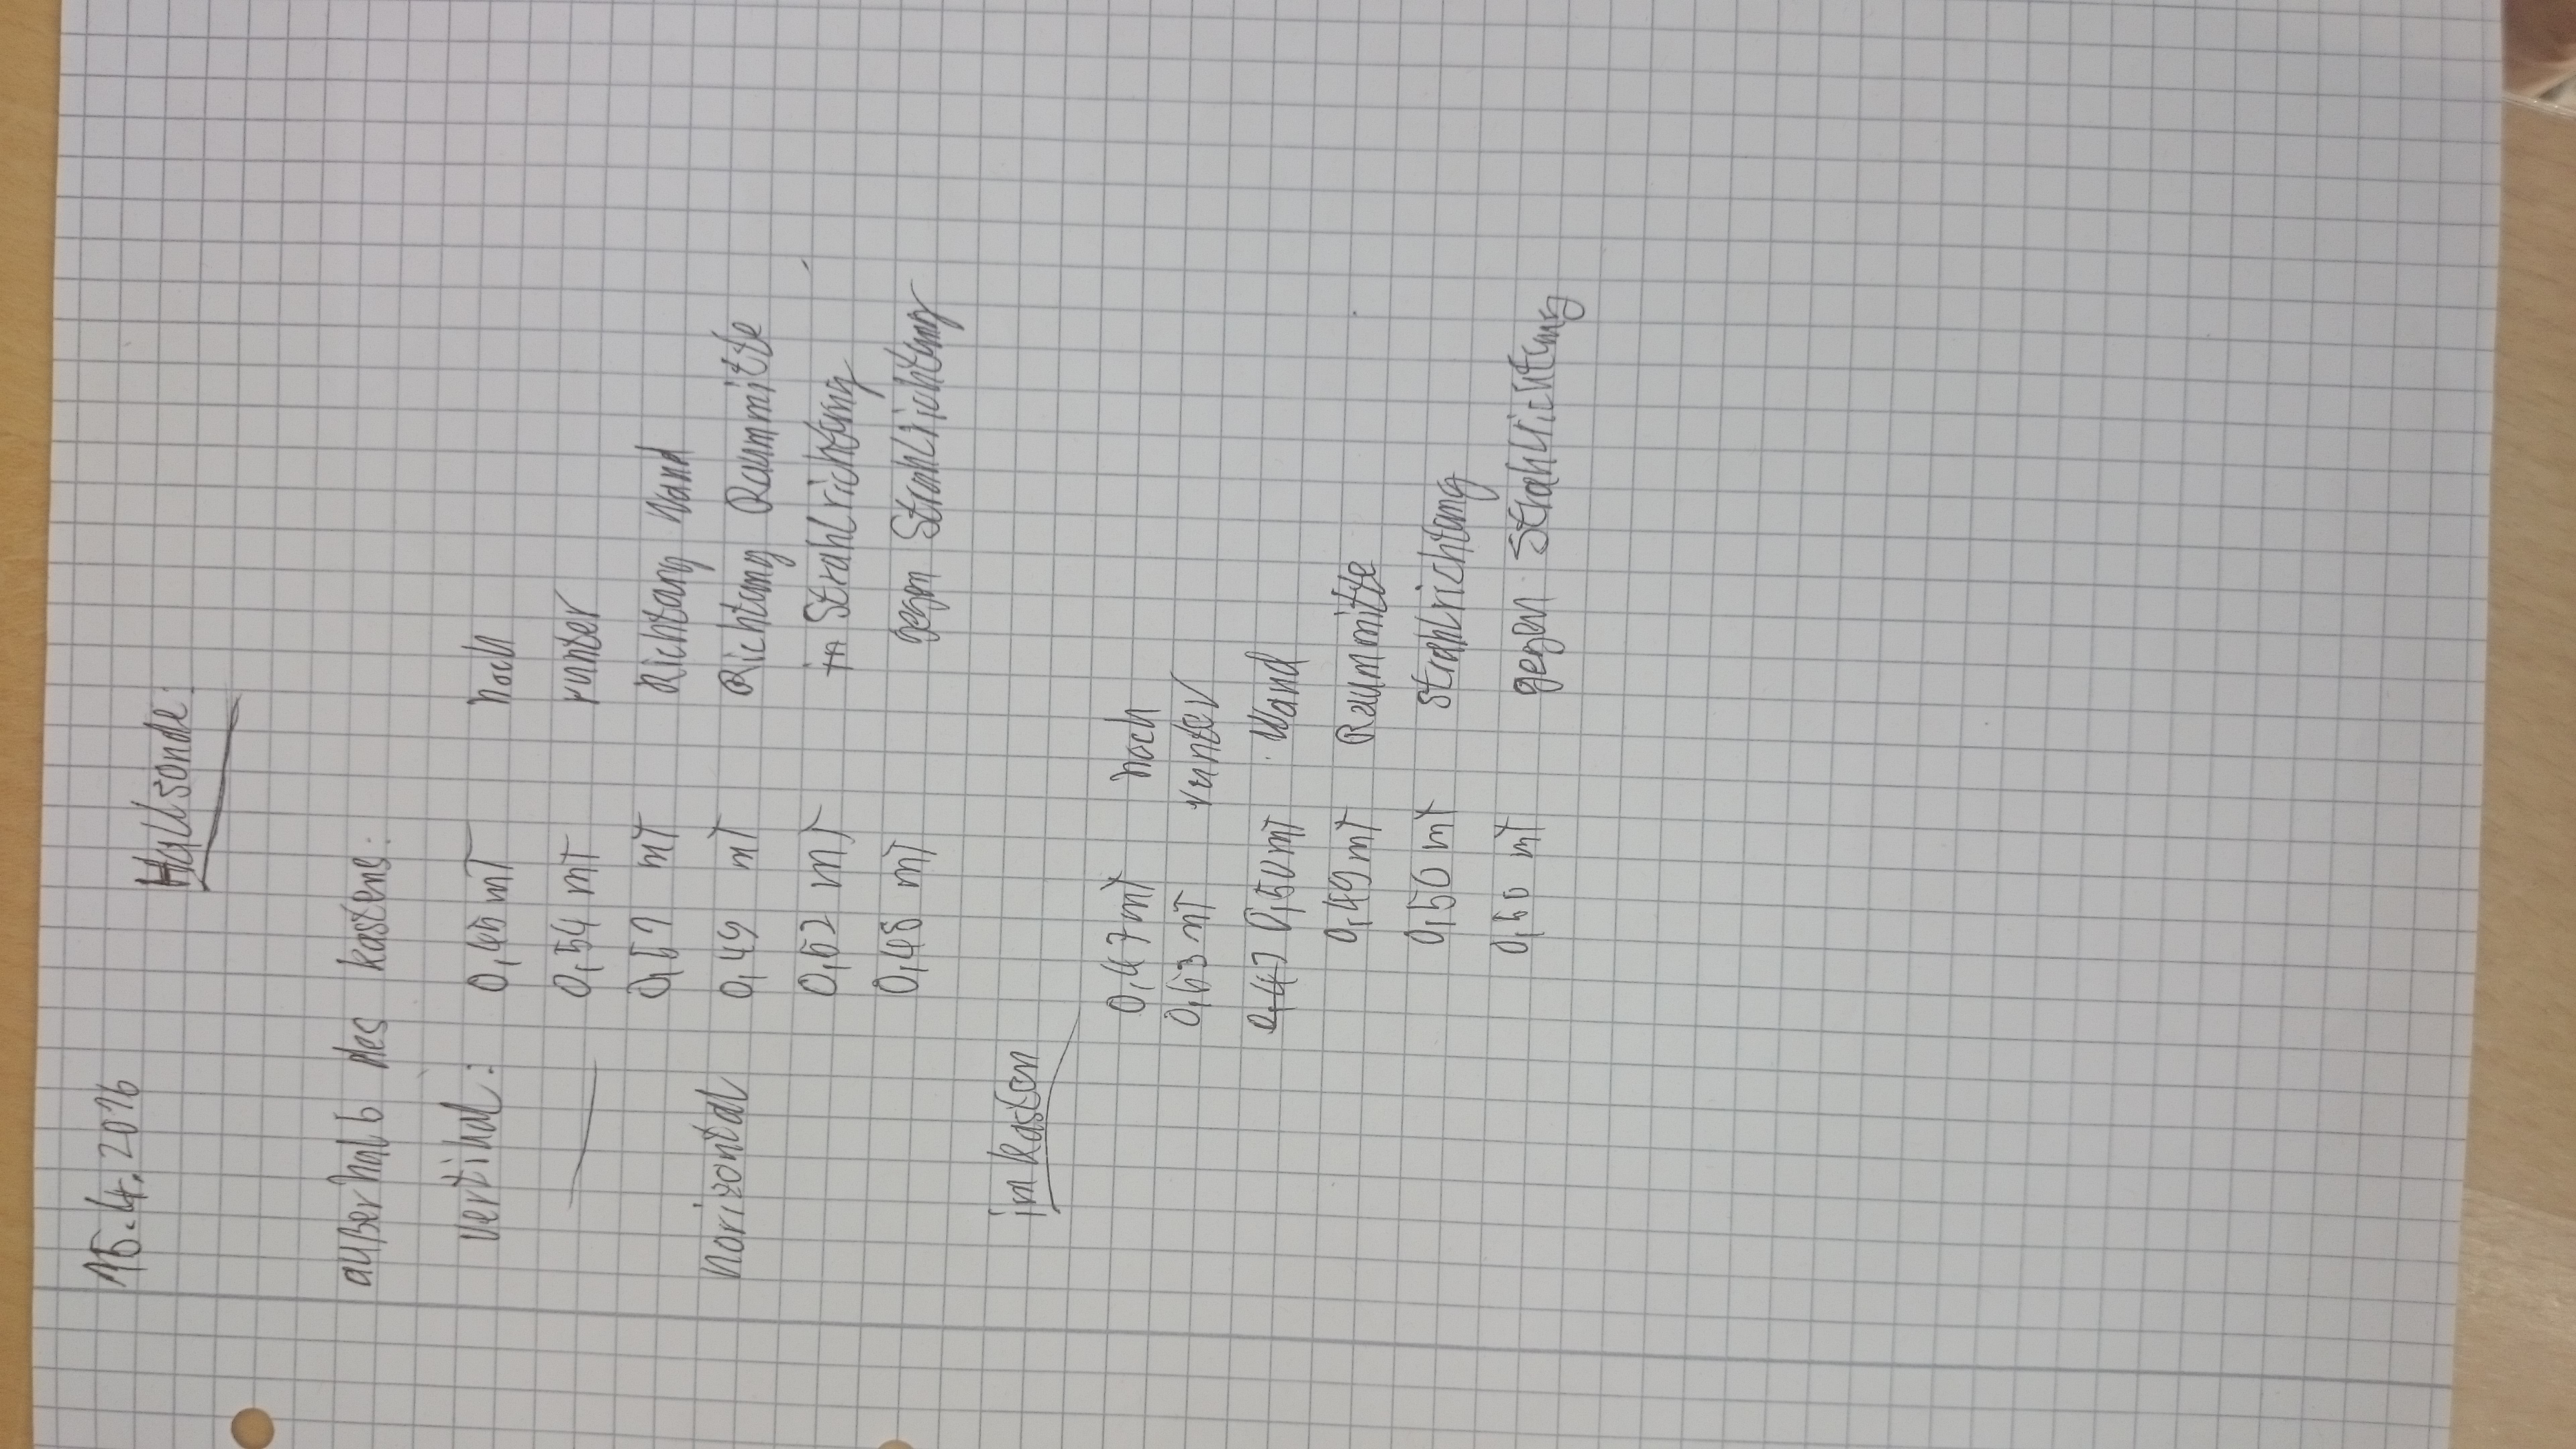 15.4.2016
Hallsonde:
außerhalb des kastens:
vertikal: 0,45 mT hoch
0,54 mT runter
0,51 mT Richtung Wand
horizontal 0,49 mT Richtung Raummitte
0,52 mT in Strahlrichtung
0,48 mT gegen Strahlrichtung
im Kasten
0,47 mT hoch
0,53 mT runter
0,47 0,50 mT Wand
0,49 mT Raummitte
0,50 mT Strahlrichtung
0,50 mT gegen Strahlrichtung